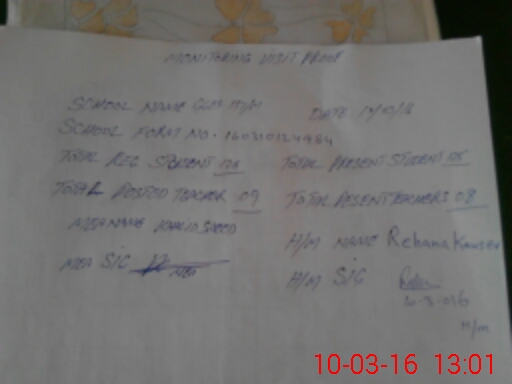 MONITORING VISIT PROOF
SCHOOL NAME GGPS DATE 10/03/16
SCHOOL FORMAT NO. 160310124484
TOTAL REG STUDENT TOTAL PRESENT STUDENT
TOTAL POSTED TEACHER 09 TOTAL PRESENT TEACHERS 08
MEA NAME KHALID SAEED
H/M NAME Rehana Kausar
MEA SIG MEA
H/M SIG
10-3-016
H/M
10-03-16 13:01